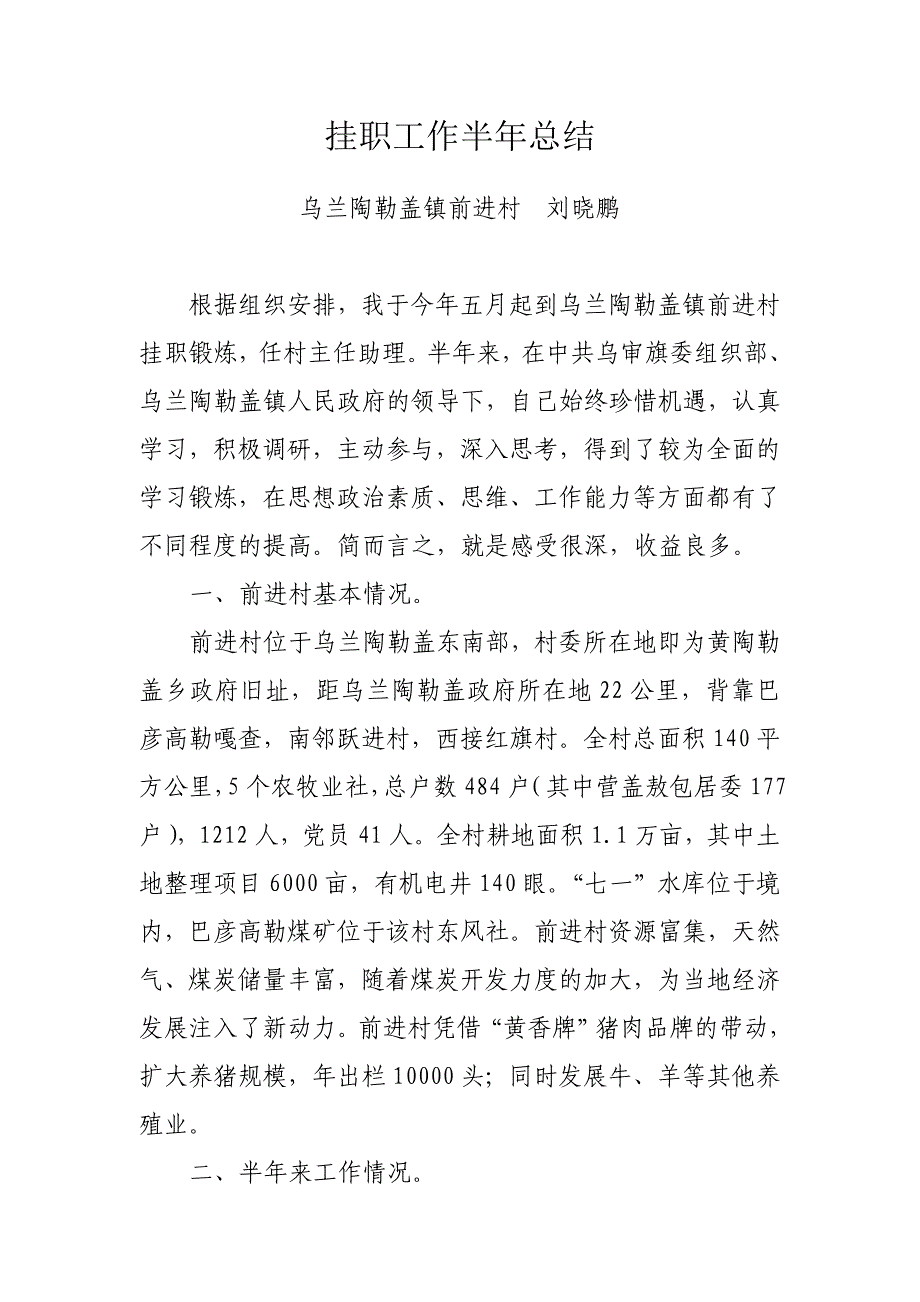 挂职工作半年总结
乌兰陶勒盖镇前进村　刘晓鹏
根据组织安排，我于今年五月起到乌兰陶勒盖镇前进村
挂职锻炼，任村主任助理。半年来，在中共乌审旗委组织部、
乌兰陶勒盖镇人民政府的领导下，自己始终珍惜机遇，认真
学习，积极调研，主动参与，深入思考，得到了较为全面的
学习锻炼，在思想政治素质、思维、工作能力等方面都有了
不同程度的提高。简而言之，就是感受很深，收益良多。
一、前进村基本情况。
前进村位于乌兰陶勒盖东南部，村委所在地即为黄陶勒
盖乡政府旧址，距乌兰陶勒盖政府所在地 22 公里，背靠巴
彦高勒嘎查，南邻跃进村，西接红旗村。全村总面积 140 平
方公里，5 个农牧业社，总户数 484 户（其中营盖敖包居委 177
户），1212 人，党员 41 人。全村耕地面积 1.1 万亩，其中土
地整理项目 6000 亩，有机电井 140 眼。“七一”水库位于境
内，巴彦高勒煤矿位于该村东风社。前进村资源富集，天然
气、煤炭储量丰富，随着煤炭开发力度的加大，为当地经济
发展注入了新动力。前进村凭借“黄香牌”猪肉品牌的带动，
扩大养猪规模，年出栏 10000 头；同时发展牛、羊等其他养
殖业。
二、半年来工作情况。